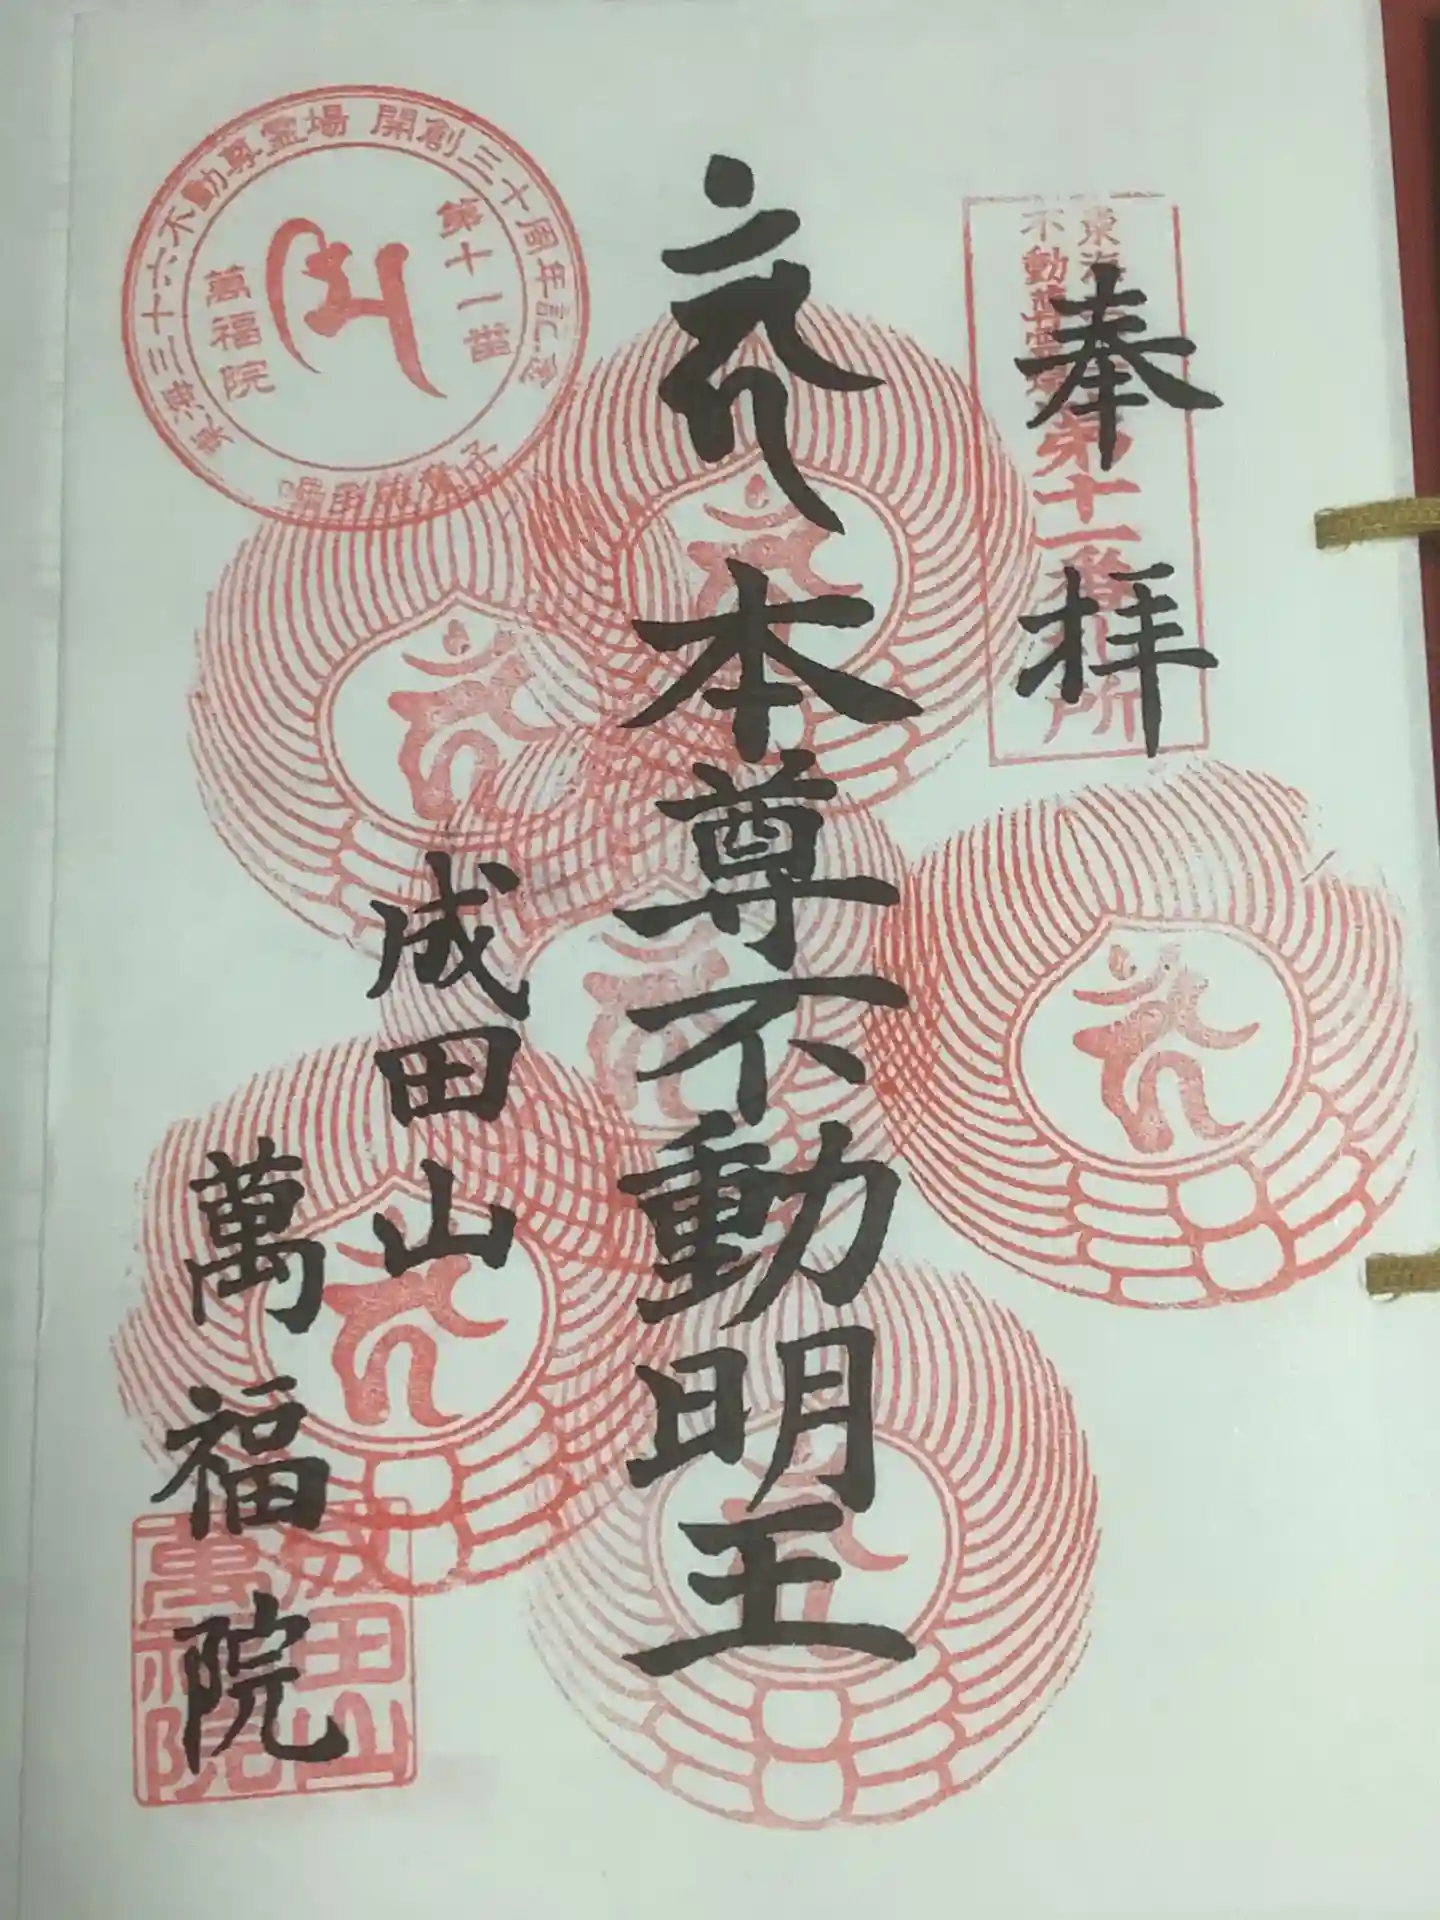 奉拝
東海
不動尊霊場
第十一番札所
本尊不動明王
成田山
萬福院
東海三十六不動尊霊場 開創三十周年記念
第十一番
萬福院
成田山
萬福院